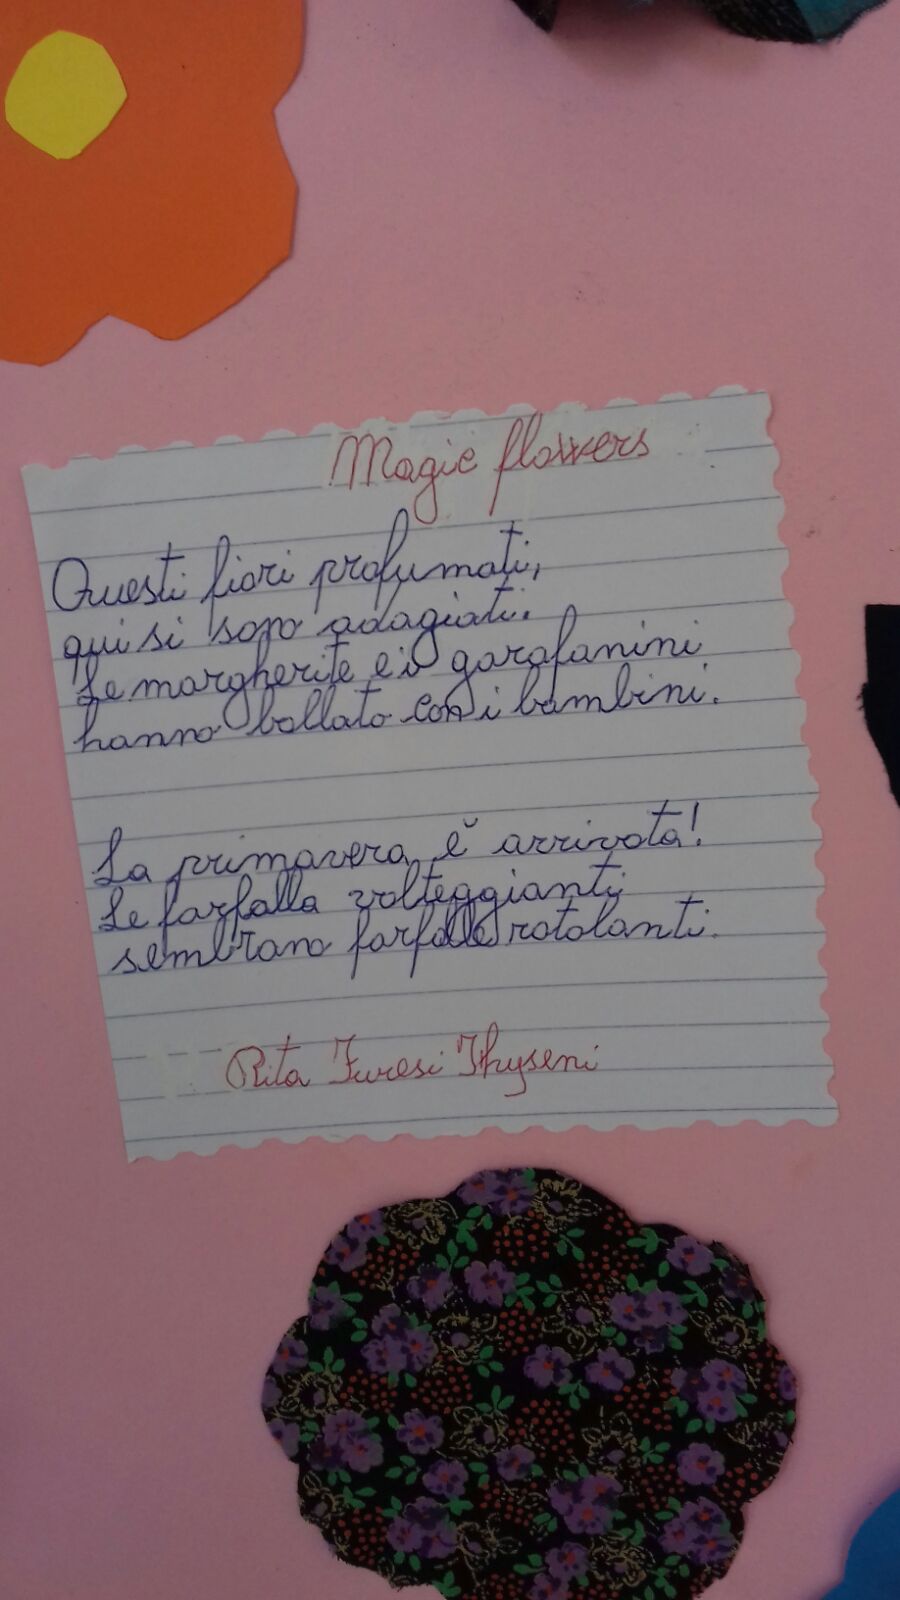 Magic flowers
Questi fiori profumati,
qui si sono adagiati.
Le margherite e i garafanini
hanno ballato con i bambini.
La primavera è arrivata!
Le farfalla volteggianti
sembrano farfalle rotolanti.
Rita Furesi Thyseni